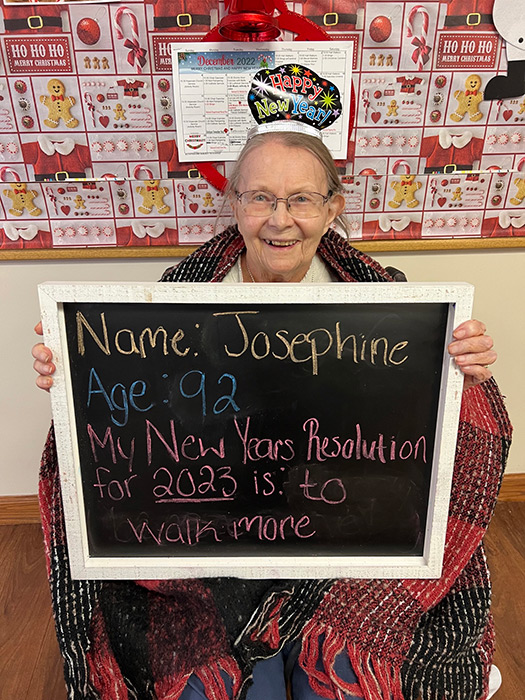 HO HO HO
MERRY CHRISTMAS
December 2022
MERRY CHRISTMAS AND HAPPY NEW YEAR
HO HO HO
MERRY CHRISTMAS
Happy
New Year!
Name: Josephine
Age: 92
My New Years Resolution
for 2023 is: to
walk more